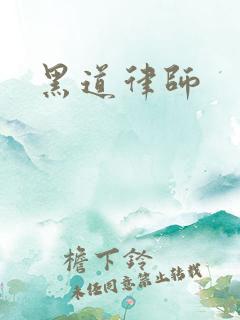 黑道律師
檐下鈴
未经同意禁止转载